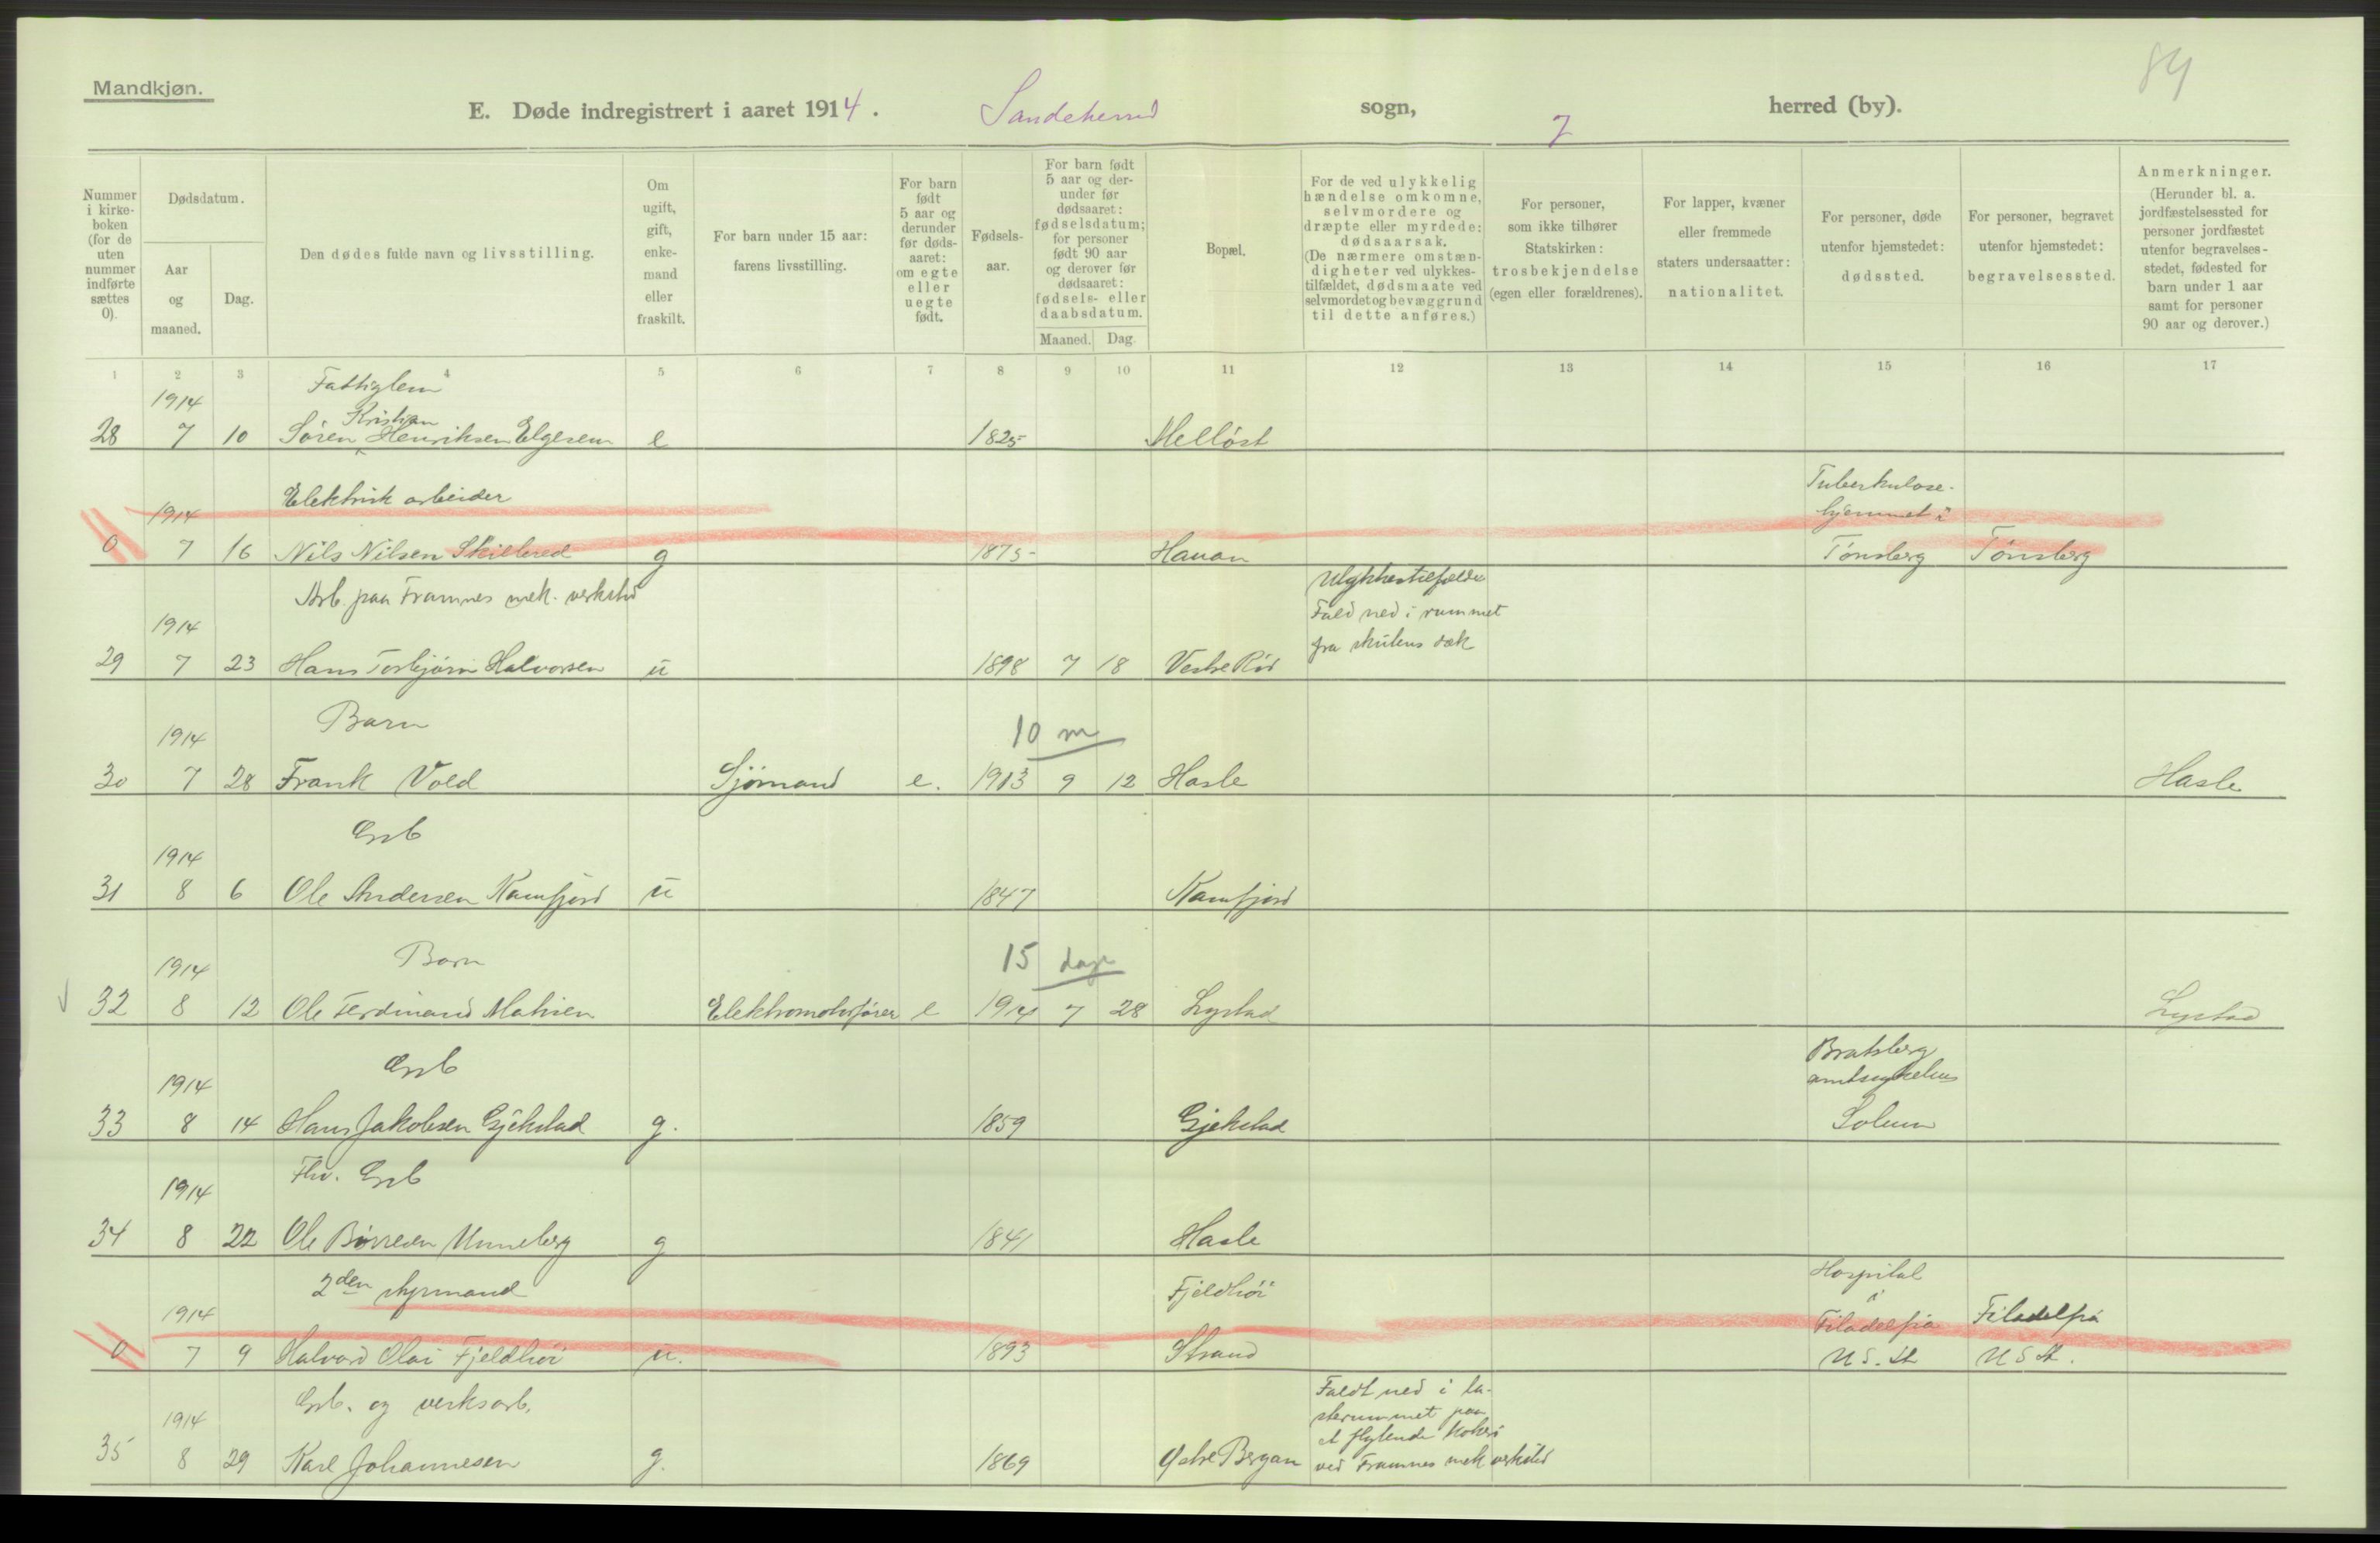 84
Mandkjøn.
E. Døde indregistrert i aaret 1914. Sandeherred sogn, 7 herred (by).
Nummer i kirke-boken (for de uten nummer indførte sættes 0).
Dødsdatum.
Aar og maaned.
Dag.
Den dødes fulde navn og livsstilling.
Om ugift, gift, enke-mand eller fraskilt.
For barn under 15 aar: farens livsstilling.
For barn født 5 aar og derunder før døds-aaret: om egte eller uegte født.
Fødsels-aar.
For barn født 5 aar og der-under før dødsaaret: fødselsdatum; for personer født 90 aar og derover før dødsaaret: fødsels- eller daabsdatum.
Maaned. Dag.
Bopæl.
For de ved ulykkelig hændelse omkomne, selvmordere og dræpte eller myrdede: dødsaarsak. (De nærmere omstæn-digheter ved ulykkes-tilfældet, dødsmaate ved selvmordet og bevæggrund til dette anføres.)
For personer, som ikke tilhører Statskirken: trosbekjendelse (egen eller forældrenes).
For lapper, kvæner eller fremmede staters undersaatter: nationalitet.
For personer, døde utenfor hjemstedet: dødssted.
For personer, begravet utenfor hjemstedet: begravelsessted.
Anmerkninger. (Herunder bl. a. jordfæstelsessted for personer jordfæstet utenfor begravelses-stedet, fødested for barn under 1 aar samt for personer 90 aar og derover.)
1 2 3 4 5 6 7 8 9 10 11 12 13 14 15 16 17
Fattiglem
1914 Kristian
28 7 10 Søren Henriksen Elgesem e 1825 Melløst
Elektrisk arbeider Tuberkulose-
1914 hjemmet i
0 7 16 Nils Nilsen Skillered g 1875 Hauan Tønsberg Tønsberg
Arb. paa Framnes mek. verksted Ulykkestilfælde
1914 Fald ned i rummet
fra skutens dæk
29 7 23 Hans Torbjørn Halvorsen u 1898 7 18 Vestre Rød
Barn
1914 10 m
30 7 28 Frank Vold Sjømand e. 1913 9 12 Hasle Hasle
Grb
1914
31 8 6 Ole Andersen Kamfjord u 1847 Kamfjord
Barn
1914 15 dage
32 8 12 Ole Ferdinand Mathisen Elektromotorfører e 1914 7 28 Lystad Lystad
Grb Bratsberg
1914 amtssykehus
33 8 14 Hans Jakobsen Gjekstad g. 1859 Gjekstad Solum
Fhv. Grb
1914
34 8 22 Ole Børresen Unneberg g 1841 Hasle
2den styrmand Fjeldhøi Hospital
1914 i Filadelfia Filadelfia
0 7 9 Halvard Olai Fjeldhøi u. 1893 Strand U S. St U S St.
Grb. og verksarb. Faldt ned i la-
1914 sterummet paa
et flytende kokeri
35 8 29 Karl Johannesen g. 1869 Østre Bergan ved Framnes mek verksted